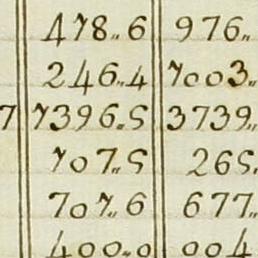 478,,6 976,,
246,,4 7003,,
7 7396,,5 3739,,
707,,5 265,
707,,6 677,,
400,,0 004,